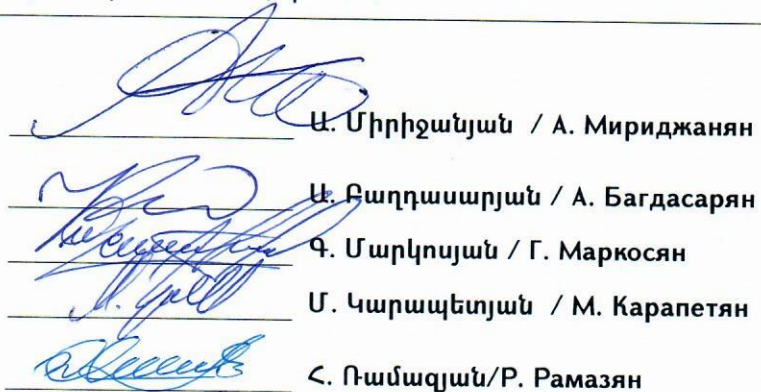 Ա. Միրիջանյան / А. Мириджанян
Ա. Բաղդասարյան / А. Багдасарян
Գ. Մարկոսյան / Г. Маркосян
Մ. Կարապետյան / М. Карапетян
Հ. Ռամազյան/Р. Рамазян